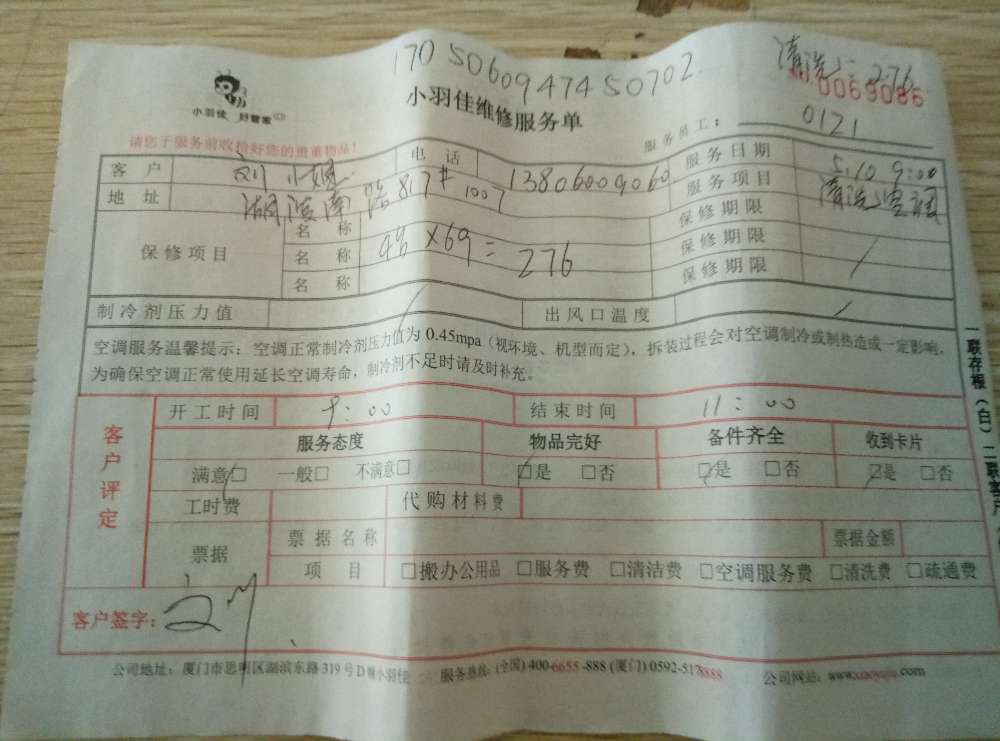 1705060947450702
清洗：276
0069086
小羽佳 好管家
小羽佳维修服务单
请您于服务前收拾好您的贵重物品！
服务员工： 0121
客户 刘小姐 电话 13806009060 服务日期 5.10 9:00
地址 湖滨南路817# 1007 服务项目 清洗空调
保修项目 名称 保修期限
名称 4台×69=276 保修期限
名称 保修期限
制冷剂压力值 / 出风口温度 /
空调服务温馨提示：空调正常制冷剂压力值为0.45mpa（视环境、机型而定），拆装过程会对空调制冷或制热造成一定影响，
为确保空调正常使用延长空调寿命，制冷剂不足时请及时补充。
客户评定
开工时间 9:00 结束时间 11:00
服务态度 物品完好 备件齐全 收到卡片
满意□ 一般□ 不满意□ □是 □否 □是 □否 □是 □否
工时费 代购材料费
票据 票据名称 票据金额
项目 □搬办公用品 □服务费 □清洁费 □空调服务费 □清洗费 □疏通费
客户签字：
公司地址：厦门市思明区湖滨东路319号D 小羽佳 服务热线：(全国)400-6655-888 (厦门)0592-5178888 公司网站：www.xiaoyujia.com
一联存根（白）二联客户